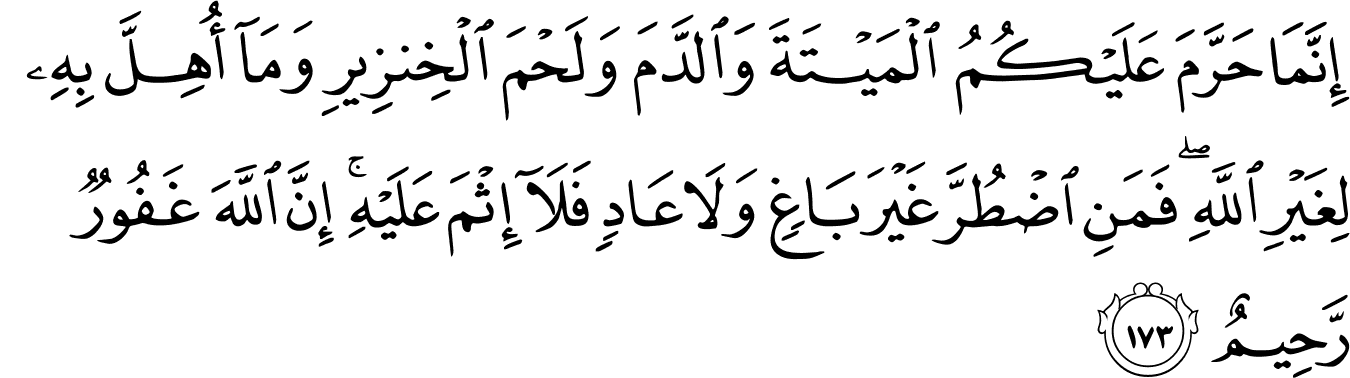 إِنَّمَا حَرَّمَ عَلَيْكُمُ ٱلْمَيْتَةَ وَٱلدَّمَ وَلَحْمَ ٱلْخِنزِيرِ وَمَآ أُهِلَّ بِهِۦ
لِغَيْرِ ٱللَّهِ ۖ فَمَنِ ٱضْطُرَّ غَيْرَ بَاغٍ وَلَا عَادٍ فَلَآ إِثْمَ عَلَيْهِ ۚ إِنَّ ٱللَّهَ غَفُورٌ
رَّحِيمٌ ١٧٣